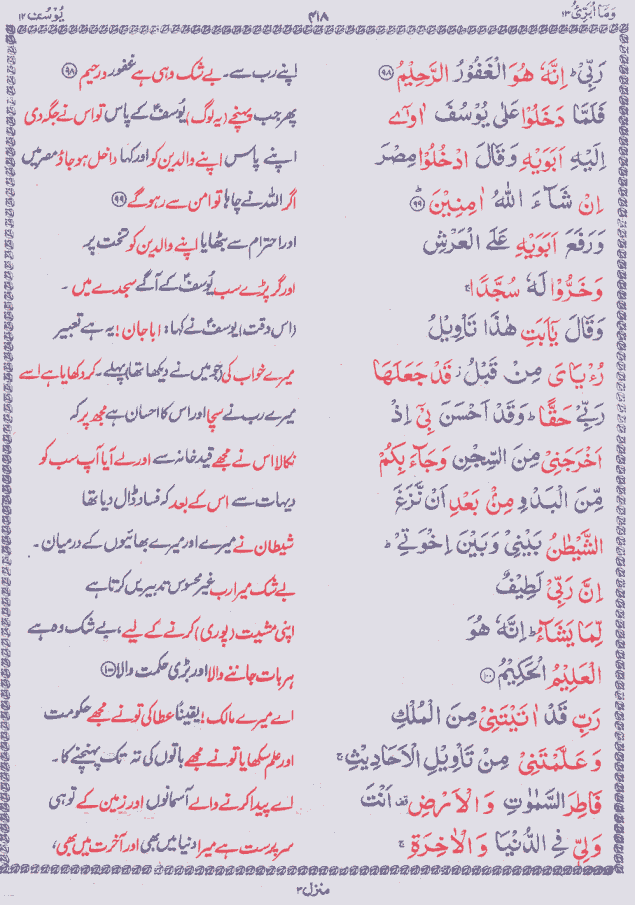 وَمَآ اُبَرِّئُ ۱۳
۳۱۸
یُوْسُف ۱۲
رَبِّیْ ؕ اِنَّهٗ هُوَ الْغَفُوْرُ الرَّحِیْمُ ۹۸
اپنے رب سے۔ بے شک وہی ہے غفور ورحیم ۹۸
فَلَمَّا دَخَلُوْا عَلٰى یُوْسُفَ اٰوٰۤی
پھر جب پہنچے (یہ لوگ) یُوسفؑ کے پاس تو اس نے جگہ دی
اِلَیْهِ اَبَوَیْهِ وَقَالَ ادْخُلُوْا مِصْرَ
اپنے پاس اپنے والدین کو اور کہا داخل ہو جاؤ مصر میں
اِنْ شَآءَ اللّٰهُ اٰمِنِیْنَ ؕ ۹۹
اگر اللہ نے چاہا تو امن سے رہو گے ۹۹
وَرَفَعَ اَبَوَیْهِ عَلَى الْعَرْشِ
اور احترام سے بٹھایا اپنے والدین کو تخت پر
وَخَرُّوْا لَهٗ سُجَّدًا ۚ
اور گر پڑے سب یُوسفؑ کے آگے سجدے میں ۔
وَقَالَ یٰۤاَبَتِ هٰذَا تَاْوِیْلُ
(اس وقت) یوسفؑ نے کہا: ابا جان! یہ ہے تعبیر
رُءْیَایَ مِنْ قَبْلُ ؗ قَدْ جَعَلَهَا
میرے خواب کی (جو میں نے دیکھا تھا) پہلے۔ کر دکھایا ہے اسے
رَبِّیْ حَقًّا ؕ وَقَدْ اَحْسَنَ بِیْۤ اِذْ
میرے رب نے سچا اور اس کا احسان ہے مجھ پر کہ
اَخْرَجَنِیْ مِنَ السِّجْنِ وَجَآءَ بِكُمْ
نکالا اس نے مجھے قید خانہ سے اور لے آیا آپ سب کو
مِّنَ الْبَدْوِ مِنْۢ بَعْدِ اَنْ نَّزَغَ
دیہات سے اس کے بعد کہ فساد ڈال دیا تھا
الشَّیْطٰنُ بَیْنِیْ وَبَیْنَ اِخْوَتِیْ ؕ
شیطان نے میرے اور میرے بھائیوں کے درمیان۔
اِنَّ رَبِّیْ لَطِیْفٌ
بے شک میرا رب غیر محسوس تدبیریں کرتا ہے
لِّمَا یَشَآءُ ؕ اِنَّهٗ هُوَ
اپنی مشیت (پوری) کرنے کے لیے، بے شک وہ ہے
الْعَلِیْمُ الْحَكِیْمُ ۱۰۰
ہر بات جاننے والا اور بڑی حکمت والا ۱۰۰
رَبِّ قَدْ اٰتَیْتَنِیْ مِنَ الْمُلْكِ
اے میرے مالک! یقیناً عطا کی تو نے مجھے حکومت
وَعَلَّمْتَنِیْ مِنْ تَاْوِیْلِ الْاَحَادِیْثِ ۚ
اور علم سکھایا تو نے مجھے باتوں کی تہ تک پہنچنے کا۔
فَاطِرَ السَّمٰوٰتِ وَالْاَرْضِ ۫ اَنْتَ
اے پیدا کرنے والے آسمانوں اور زمین کے تو ہی
وَلِیّٖ فِی الدُّنْیَا وَالْاٰخِرَةِ ۚ
سرپرست ہے میرا دنیا میں بھی اور آخرت میں بھی،
منزل ۳